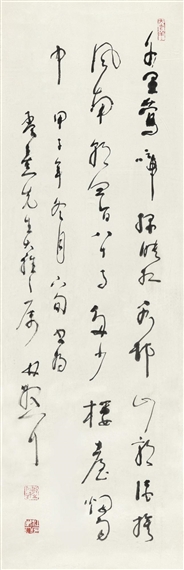 千里鶯啼綠映紅水邨山郭酒旗
風南朝四百八十寺多少樓臺煙雨
中 甲子年冬月書為
先生大雅之属 林散耳